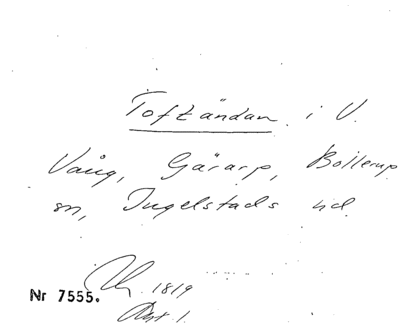 Toftändan i V.
Vång, Gärarp, Bollerup
sn, Ingelstads hd
1819
Nr 7555.
Akt 1.